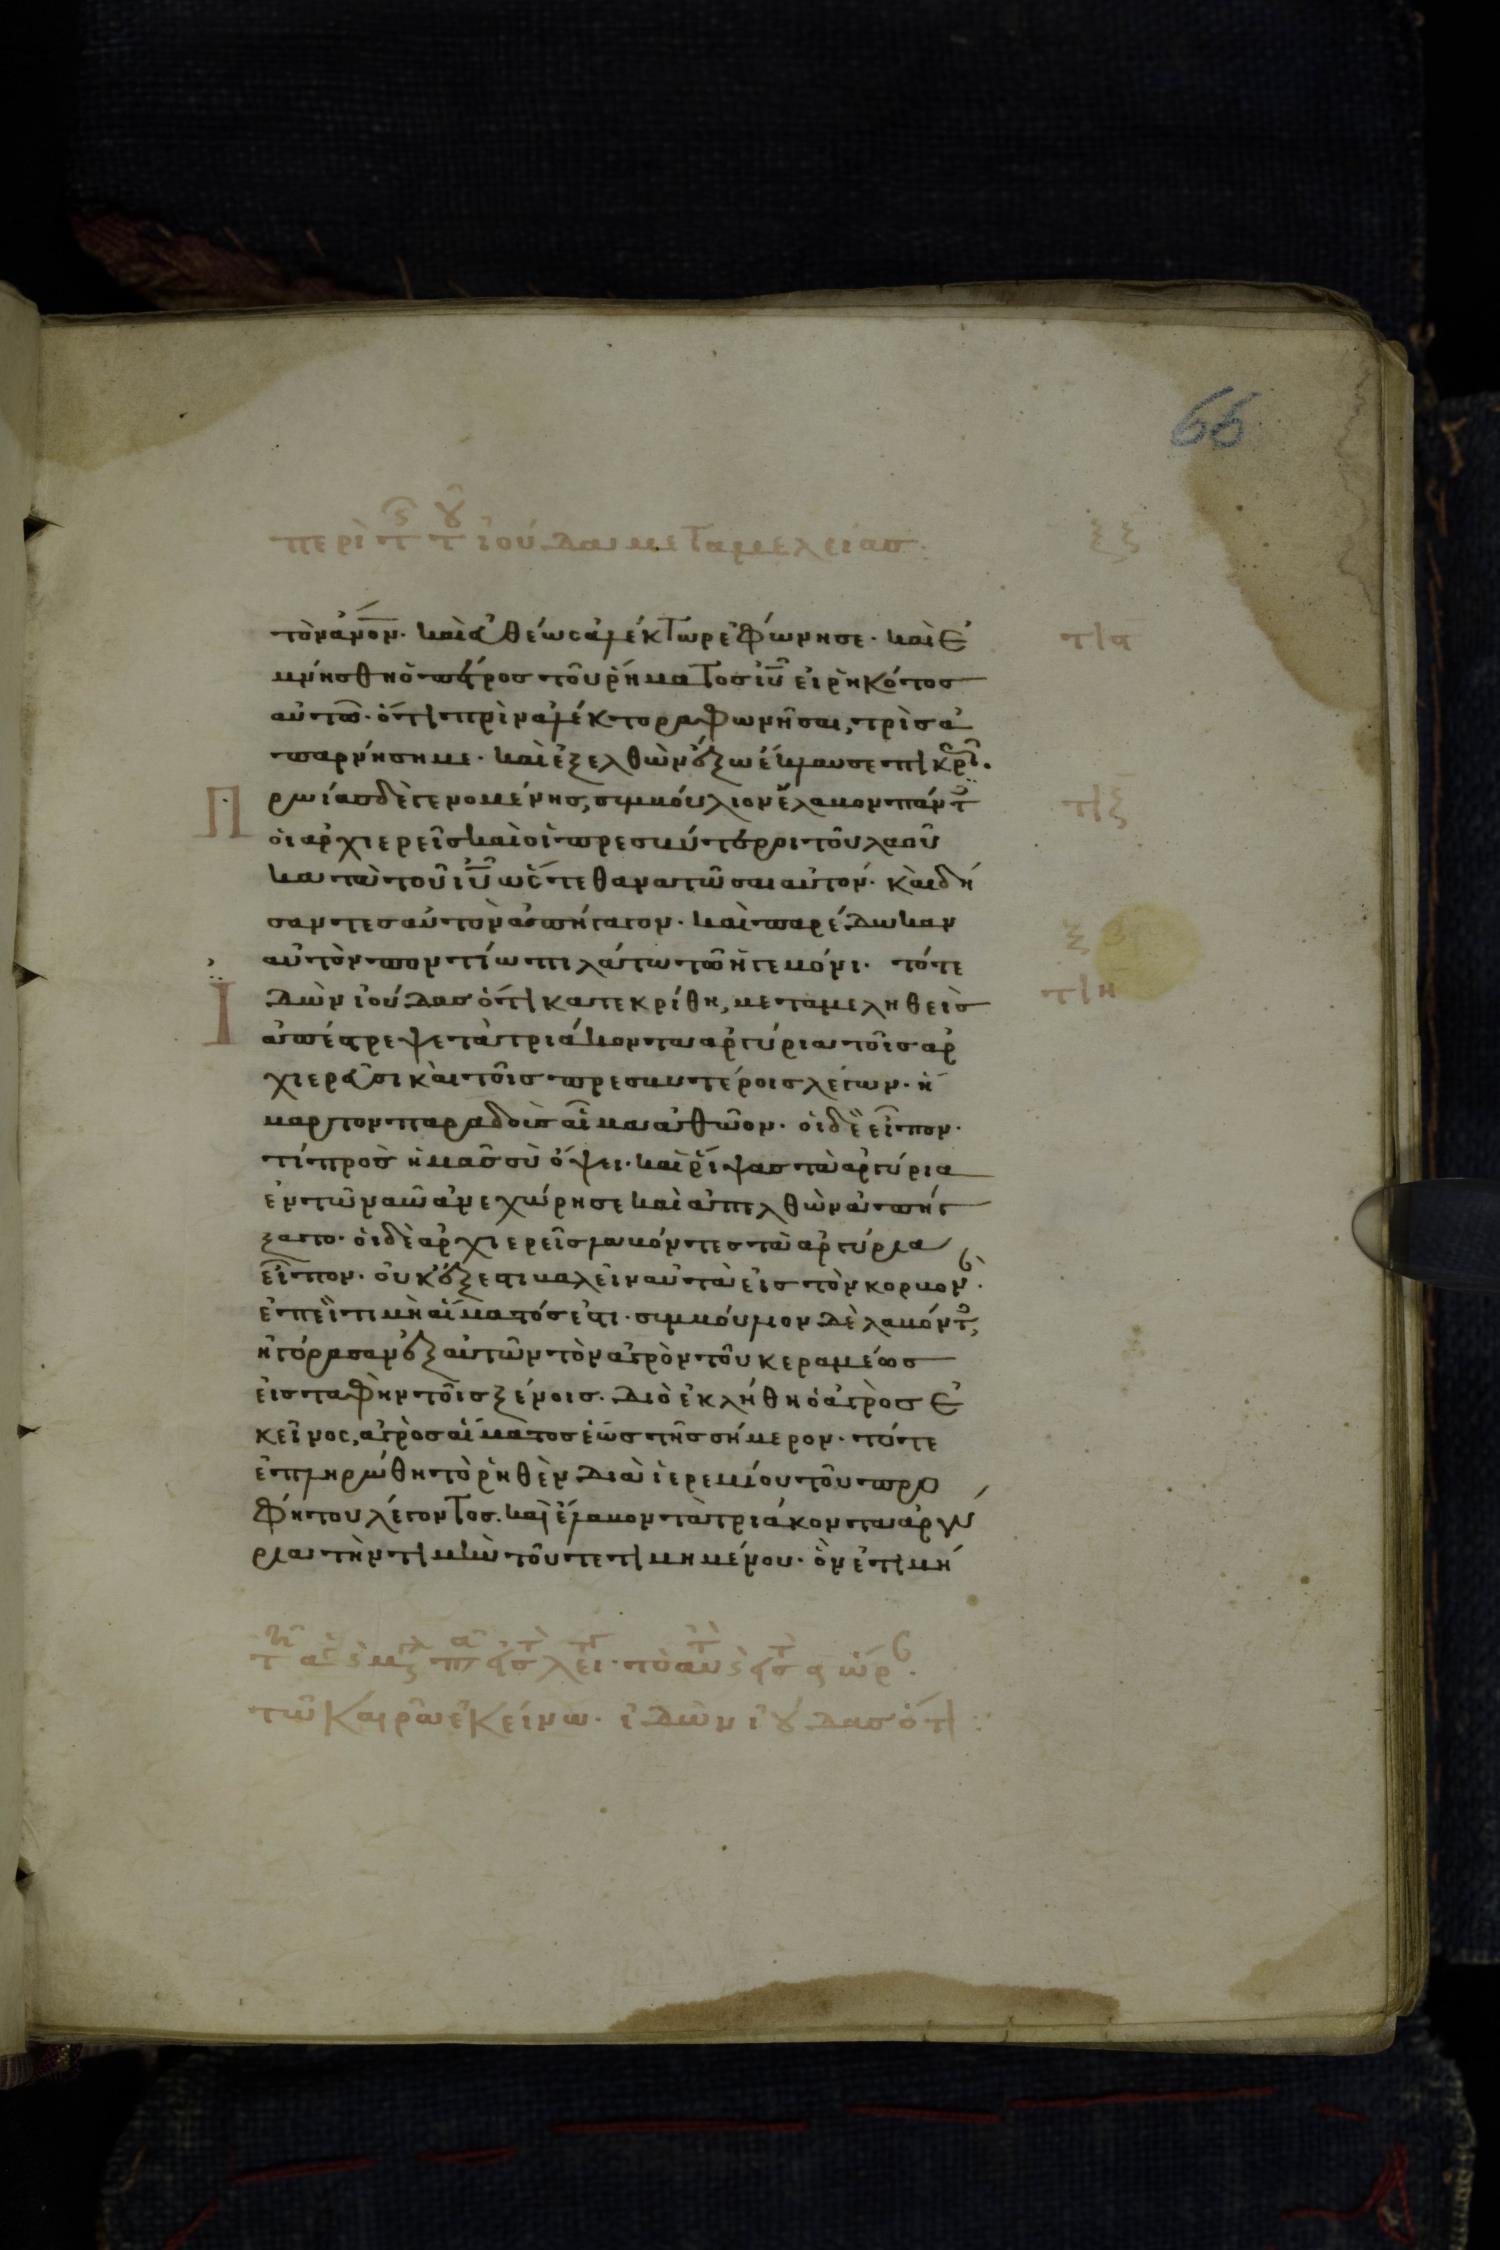 66
περὶ τ τ ἰούδα μεταμελείας
ξξ
τὸν ἄνον· καὶ εὐθέως ἀλέκτωρ ἐφώνησε· καὶ ἐ
μνήσθη ὁ πέτρος τοῦ ῥήματος ἰῦ εἰρηκότος
αὐτῶ· ὅτι πρὶν ἀλέκτορα φωνῆσαι, τρὶς ἀ
παρνήσῃ με· καὶ ἐξελθὼν ἔξω ἔκλαυσε πικρῶ.
Πρωίας δὲ γενομένης, συμβούλιον ἔλαβον πάντ
οἱ ἀρχιερεῖς καὶ οἱ πρεσβύτεροι τοῦ λαοῦ
κατὰ τοῦ ἰῦ ὥστε θανατῶσαι αὐτόν· καὶ δή
σαντες αὐτὸν ἀπήγαγον· καὶ παρέδωκαν
αὐτὸν ποντίω πιλάτω τῶ ἡγεμόνι· τότε
Ἰδὼν ἰούδας ὅτι κατεκρίθη, μεταμεληθεὶς
ἀπέστρεψε τὰ τριάκοντα ἀργύρια τοῖς ἀρ
χιερεῦσι καὶ τοῖς πρεσβυτέροις λέγων· ἥ
μαρτον παραδοὺς αἷμα ἀθῶον· οἱ δὲ εἶπον·
τί πρὸς ἡμᾶς σὺ ὄψει· καὶ ῥίψας τὰ ἀργύρια
ἐν τῶ ναῶ ἀνεχώρησε καὶ ἀπελθὼν ἀπήγ
ξατο· οἱ δὲ ἀρχιερεῖς λαβόντες τὰ ἀργύρια
εἶπον· οὐκ ἔξεστι βαλεῖν αὐτὰ εἰς τὸν κορβον·
ἐπεὶ τιμὴ αἵματός ἐστι· συμβούλιον δὲ λαβόντ,
ἠγόρασαν ἐξ αὐτῶν τὸν ἀγρὸν τοῦ κεραμέως
εἰς ταφὴν τοῖς ξένοις· διὸ ἐκλήθη ὁ ἀγρὸς ἐ
κεῖνος, ἀγρὸς αἵματος ἕως τῆς σήμερον· τότε
ἐπληρώθη τὸ ῥηθὲν διὰ ἱερεμίου τοῦ προ
φήτου λέγοντος· καὶ ἔλαβον τὰ τριάκοντα ἀργύ
ρια τὴν τιμὴν τοῦ τετιμημένου· ὃν ἐτιμή
τῶ καιρῶ ἐκείνω· ἰδὼν ἰούδας ὅτι